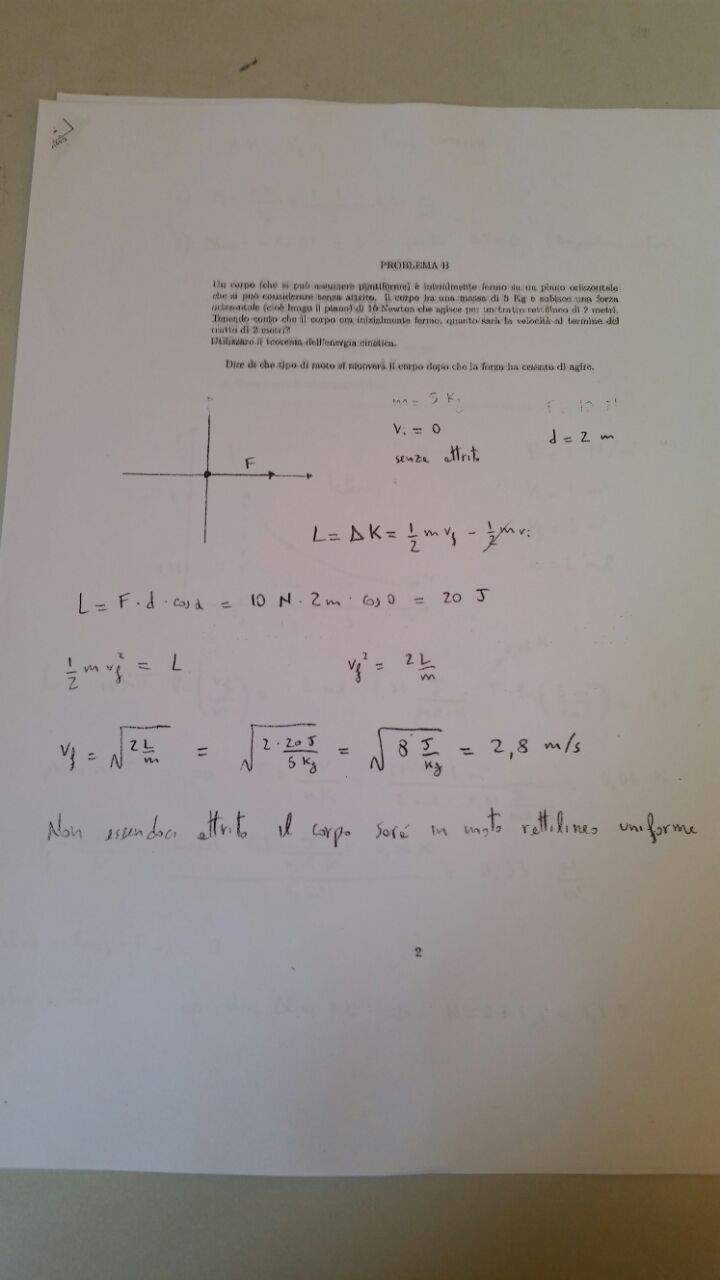 PROBLEMA B
Un corpo (che si può assumere puntiforme) è inizialmente fermo su un piano orizzontale
che si può considerare senza attrito. Il corpo ha una massa di 5 Kg e subisce una forza
orizzontale (cioè lungo il piano) di 10 Newton che agisce per un tratto rettilineo di 2 metri.
Tenendo conto che il corpo era inizialmente fermo, quanto sarà la velocità al termine del
tratto di 2 metri?
Utilizzare il teorema dell'energia cinetica.
Dire di che tipo di moto si muoverà il corpo dopo che la forza ha cessato di agire.
m = 5 Kg
vi = 0
d = 2 m
senza attrito
F
L = ΔK = 1/2 m vf - 1/2 m vi
L = F · d · cos α = 10 N · 2 m · cos 0 = 20 J
1/2 m vf² = L vf² = 2 L/m
vf = √(2 L/m) = √(2 · 20 J / 5 Kg) = √(8 J/Kg) = 2,8 m/s
Non essendoci attrito il corpo sarà in moto rettilineo uniforme
2